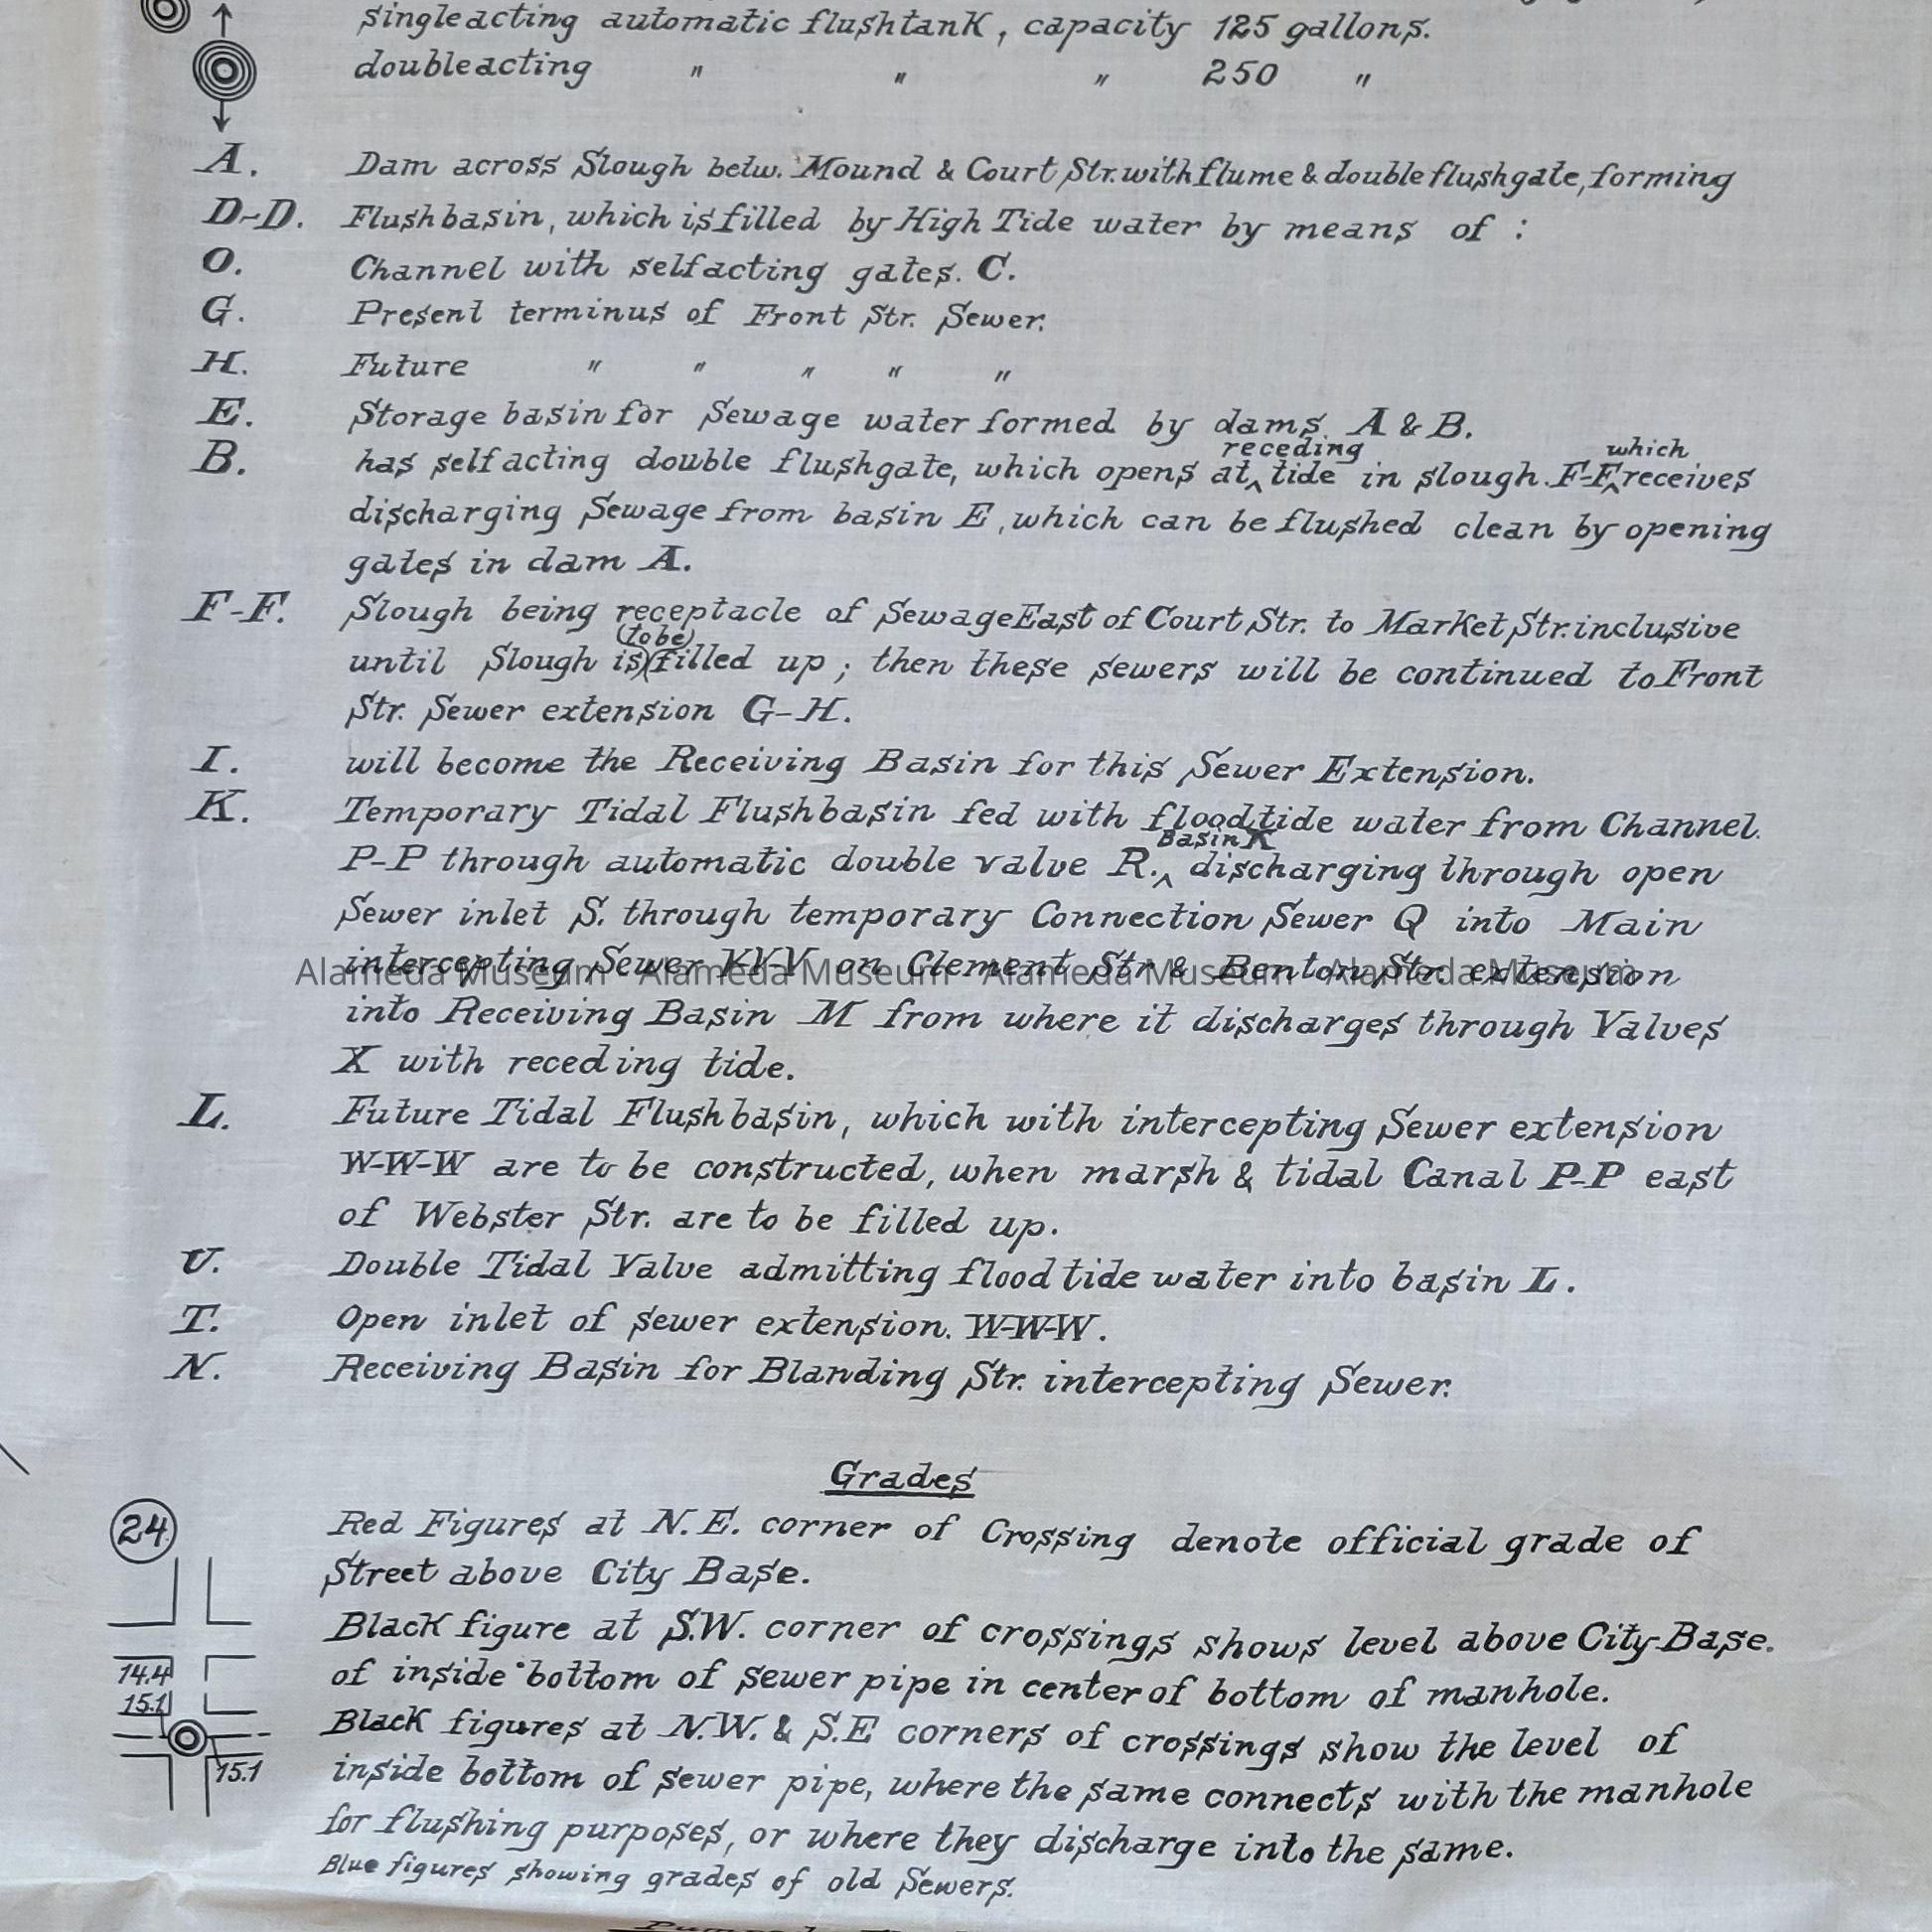 singleacting automatic flushtank, capacity 125 gallons.
doubleacting " " " 250 "
A. Dam across Slough betw. Mound & Court Str. with flume & double flushgate, forming
D-D. Flushbasin, which is filled by High Tide water by means of :
O. Channel with selfacting gates. C.
G. Present terminus of Front Str. Sewer.
H. Future " " " " "
E. Storage basin for Sewage water formed by dams A & B.
receding which
B. has selfacting double flushgate, which opens at ^ tide in slough. F-F ^ receives
discharging Sewage from basin E, which can be flushed clean by opening
gates in dam A.
F-F. Slough being receptacle of Sewage East of Court Str. to Market Str. inclusive
(to be)
until Slough is)(filled up ; then these sewers will be continued to Front
Str. Sewer extension G-H.
I. will become the Receiving Basin for this Sewer Extension.
K. Temporary Tidal Flushbasin fed with floodtide water from Channel.
Basin K
P-P through automatic double valve R. ^ discharging through open
Sewer inlet S. through temporary Connection Sewer Q into Main
intercepting Sewer on Clement Str & Benton Str. extension
Alameda Museum - Alameda Museum - Alameda Museum - Alameda Museum
into Receiving Basin M from where it discharges through Valves
X with receding tide.
L. Future Tidal Flushbasin, which with intercepting Sewer extension
W-W-W are to be constructed, when marsh & tidal Canal P-P east
of Webster Str. are to be filled up.
U. Double Tidal Valve admitting flood tide water into basin L.
T. Open inlet of sewer extension. W-W-W.
N. Receiving Basin for Blanding Str. intercepting Sewer.
Grades
24 Red Figures at N.E. corner of Crossing denote official grade of
Street above City Base.
Black figure at S.W. corner of crossings shows level above City-Base.
14.4 of inside bottom of sewer pipe in center of bottom of manhole.
15.1 Black figures at N.W. & S.E corners of crossings show the level of
15.1 inside bottom of sewer pipe, where the same connects with the manhole
for flushing purposes, or where they discharge into the same.
Blue figures showing grades of old Sewers.